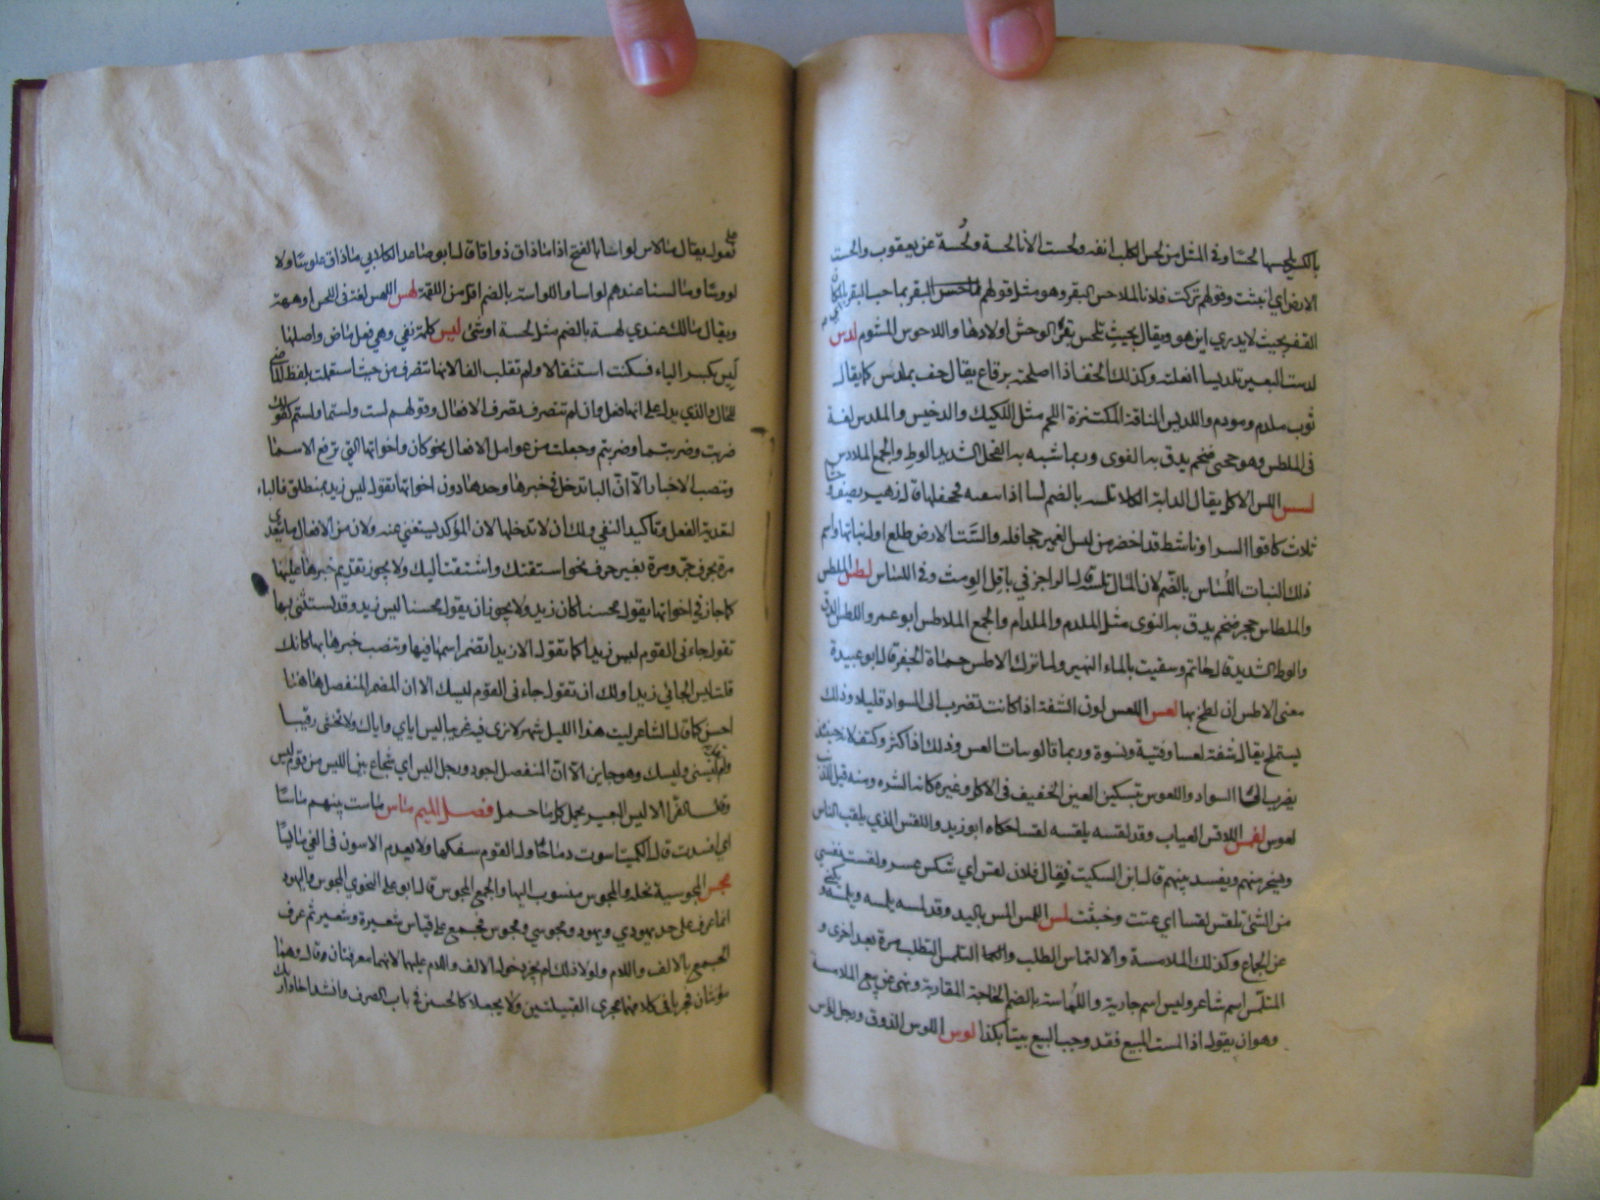 بالكسر لحسها لحسا وفي المثل من لحس الكلب انفه ولحست الانا لحسة ولُحسة عن يعقوب والحست
الارض اي انبتت وقولهم تركت فلانا الملاحس البقر وهو مثل قولهم البقر بماحب البقر
القفر بحيث لا يدري اين هو ويقال بحيث تلحس بقر الوحش اولادها واللاحوس المشوم لدس
لدست البعير تلديسا انعلته وكذلك الخف اذا اصلحته برقاع يقال خف ملدس كما يقال
ثوب ملدم ومردم واللديس الناقة المكتنزة اللحم مثل اللكيك والدخيس والملدس لغة
في الملطس وهو حجر ضخم يدق به النوى وربما شبه به الفحل الشديد الوطء والجمع الملادس
لسس اللس الاكل يقال لست الدابة الكلا تلسه بالضم لسا اذا نتفته بجحفلتها قال زهير يصف
ثلاث كاقواس السراء وناشط قد اخضر من لس الغمير جحافله والست الارض طلع اول نباتها واسم
ذلك النبات اللُساس بالضم لان المال تلسه قال الراجز في باقل الرمث وفي اللساس لطس الملطس
والملطاس حجر ضخم يدق به النوى مثل الملدم والملدام والجمع الملاطس ابو عمرو اللطس الدق
والوطء الشديد قال حاتم وسقيت بالماء النمير ولم اترك الاطس حماة الجفر قال ابو عبيدة
معنى الاطس اي تلطخ بها لعس اللعس لون الشفة اذا كانت تضرب الى السواد قليلا وذلك
يستملح يقال شفة لعسا وفتية ونسوة لعس وربما قالوا نبات العس وذلك اذا كثر وكثف لانه حينئذ
يضرب الى السواد واللعوس بتسكين العين الخفيف في الاكل وغيره كانه الشره ومنه قيل للذئب
لعوس لقس اللاقس العياب وقد لقسه يلقسه لقسا حكاه ابو زيد واللقس الذي يلقب الناس
ويسخر منهم ويفسد بينهم قال ابن السكيت يقال فلان لقس اي شكس عسر ولقست نفسي
من الشيء تلقس لقسا اي غثت وخبثت لمس اللمس المس باليد وقد لمسه يلمسه ويلمسه ويكنى
عن الجماع وكذلك الملامسة والالتماس الطلب والتلمس التطلب مرة بعد اخرى و
المتلمس اسم شاعر ولميس اسم جارية واللُماسة بالضم الحاجة المقاربة ونهى عن بيع الملامسة
وهو ان يقول اذا لمست المبيع فقد وجب البيع بيننا بكذا لوس اللوس الذوق ورجل لؤوس
على فعول يقال ما لاس لواسا بالفتح اي ما ذاق ذواقا قال ابو صاعد الكلابي ما ذاق علوسا ولا
لووسا وما لسنا عندهم لواسا واللواسة بالضم اقل من اللقمة لهس اللهس لغة في اللحس او ههة
ويقال مالك عندي لهسة بالضم مثل لحسة اي شيء ليس كلمة نفي وهي فعل ماض واصلها
لَيِس بكسر الياء فسكنت استثقالا ولم تقلب الفا لانها لا تتصرف من حيث استعملت بلفظ الماضي
للحال والذي يدل على انها فعل وان لم تتصرف تصرف الافعال وقولهم لست ولستما ولستم كقولك
ضربت وضربتما وضربتم وجعلت من عوامل الافعال نحو كان واخواتها التي ترفع الاسما
وتنصب الاخبار الا ان الباء تدخل في خبرها وحدها دون اخواتها تقول ليس زيد بمنطلق فالباء
لتعدية الفعل وتاكيد النفي ولك ان لا تدخلها لان المؤكد يستغنى عنه ولان من الافعال ما يتعدى
مرة بحرف جر ومرة بغير حرف نحو اشتقتك واشتقت اليك ولا يجوز تقديم خبرها عليها
كما جاز في اخواتها تقول محسنا كان زيد ولا يجوز ان تقول محسنا ليس زيد وقد يستثنى بها
تقول جاءني القوم ليس زيدا كما تقول الا زيدا تضمر اسمها فيها وتنصب خبرها بها كانك
قلت ليس الجائي زيدا ولك ان تقول جاءني القوم ليسك الا ان المضمر المنفصل هاهنا
احسن كما قال الشاعر ليت هذا الليل شهر لا نرى فيه غريبا ليس اياي واياك ولا نخشى رقيبا
ولم يقل ليسني وليسك وهو جايز الا ان المنفصل اجود ورجل اليس اي شجاع بين الليس من قوم ليس
وقال الفرا الاليس البعير يحمل كل ما حمل فصل الميم ماس ماست بينهم ماسا
اي افسدت قال الكميت اسوت دماء حاول القوم سفكها ولا يعدم الاسون في الغي مائسا
مجس المجوسية نحلة والمجوس منسوب اليها والجمع المجوس قال ابو علي النحوي المجوس واليهود
انما عرف على حد يهودي ويهود ومجوسي ومجوس فجمع على قياس شعيرة وشعير ثم عرف
الجمع بالالف واللام ولولا ذلك لم يجز دخول الالف واللام عليهما لانهما معرفتان قال وهما
مؤنثان فجريا في كلامهم مجرى القبيلتين ولا يجعلا كالحيين في باب الصرف وانشد احار